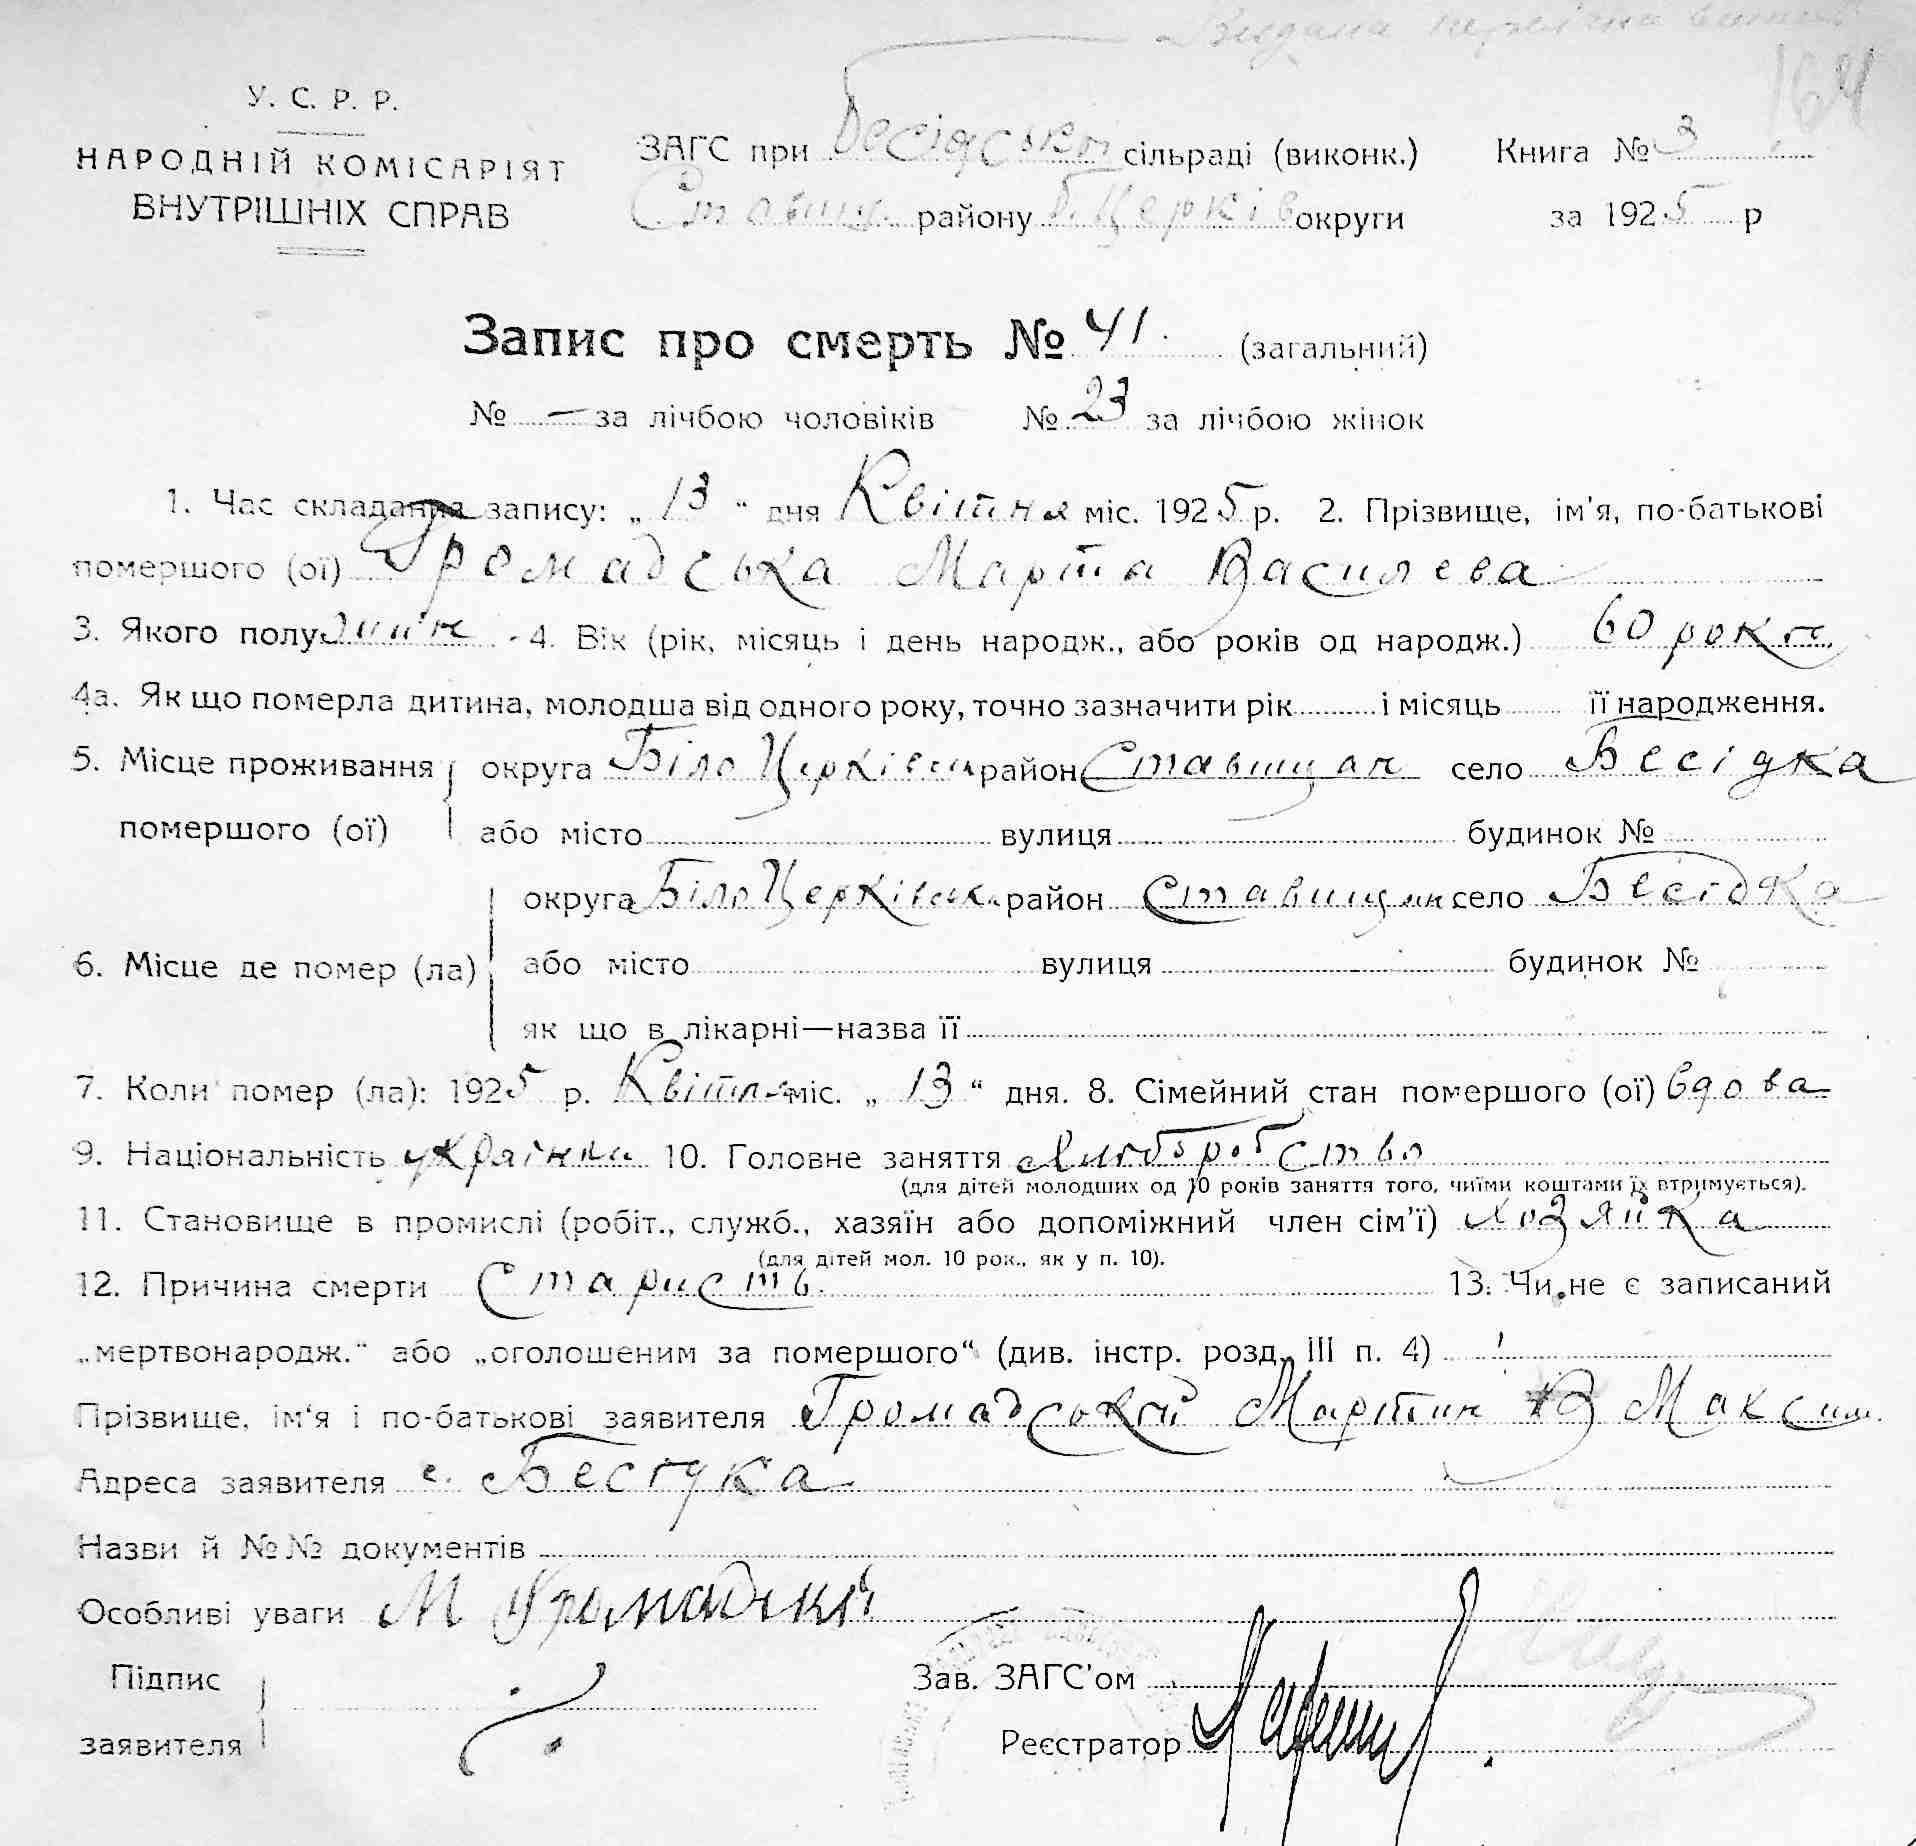 Видана
164
У. С. Р. Р.
НАРОДНІЙ КОМІСАРІЯТ
ВНУТРІШНІХ СПРАВ
ЗАГС при Бесідській сільраді (виконк.) Книга № 3
Ставищ. району Б. Церків округи за 1925 р
Запис про смерть № 41. (загальний)
№ — за лічбою чоловіків № 23 за лічбою жінок
1. Час складання запису: „ 13 “ дня Квітня міс. 1925 р. 2. Прізвище, ім'я, по-батькові
помершого (ої) Громадська Марта Василева
3. Якого полу жін 4. Вік (рік, місяць і день народж., або років од народж.) 60 роки
4а. Як що померла дитина, молодша від одного року, точно зазначити рік і місяць її народження.
5. Місце проживання округа БілоЦерківськ район Ставищан село Бесідка
помершого (ої) або місто вулиця будинок №
округа БілоЦерківськ район Ставищан село Бесідка
6. Місце де помер (ла) або місто вулиця будинок №
як що в лікарні—назва її
7. Коли помер (ла): 1925 р. Квітня міс. „ 13 “ дня. 8. Сімейний стан помершого (ої) вдова
9. Національність украінка 10. Головне заняття Хліборобство
(для дітей молодших од 10 років заняття того, чиїми коштами їх втримується).
11. Становище в промислі (робіт., служб., хазяїн або допоміжний член сім'ї) хозяйка
(для дітей мол. 10 рок., як у п. 10).
12. Причина смерти Старисть. 13. Чи не є записаний
„мертвонародж.“ або „оголошеним за помершого“ (див. інстр. розд. III п. 4)
Прізвище, ім'я і по-батькові заявителя Громадський Мартин Максим.
Адреса заявителя с. Бесідка
Назви й №№ документів
Особливі уваги М Громадский
Підпис Зав. ЗАГС'ом
заявителя Реєстратор